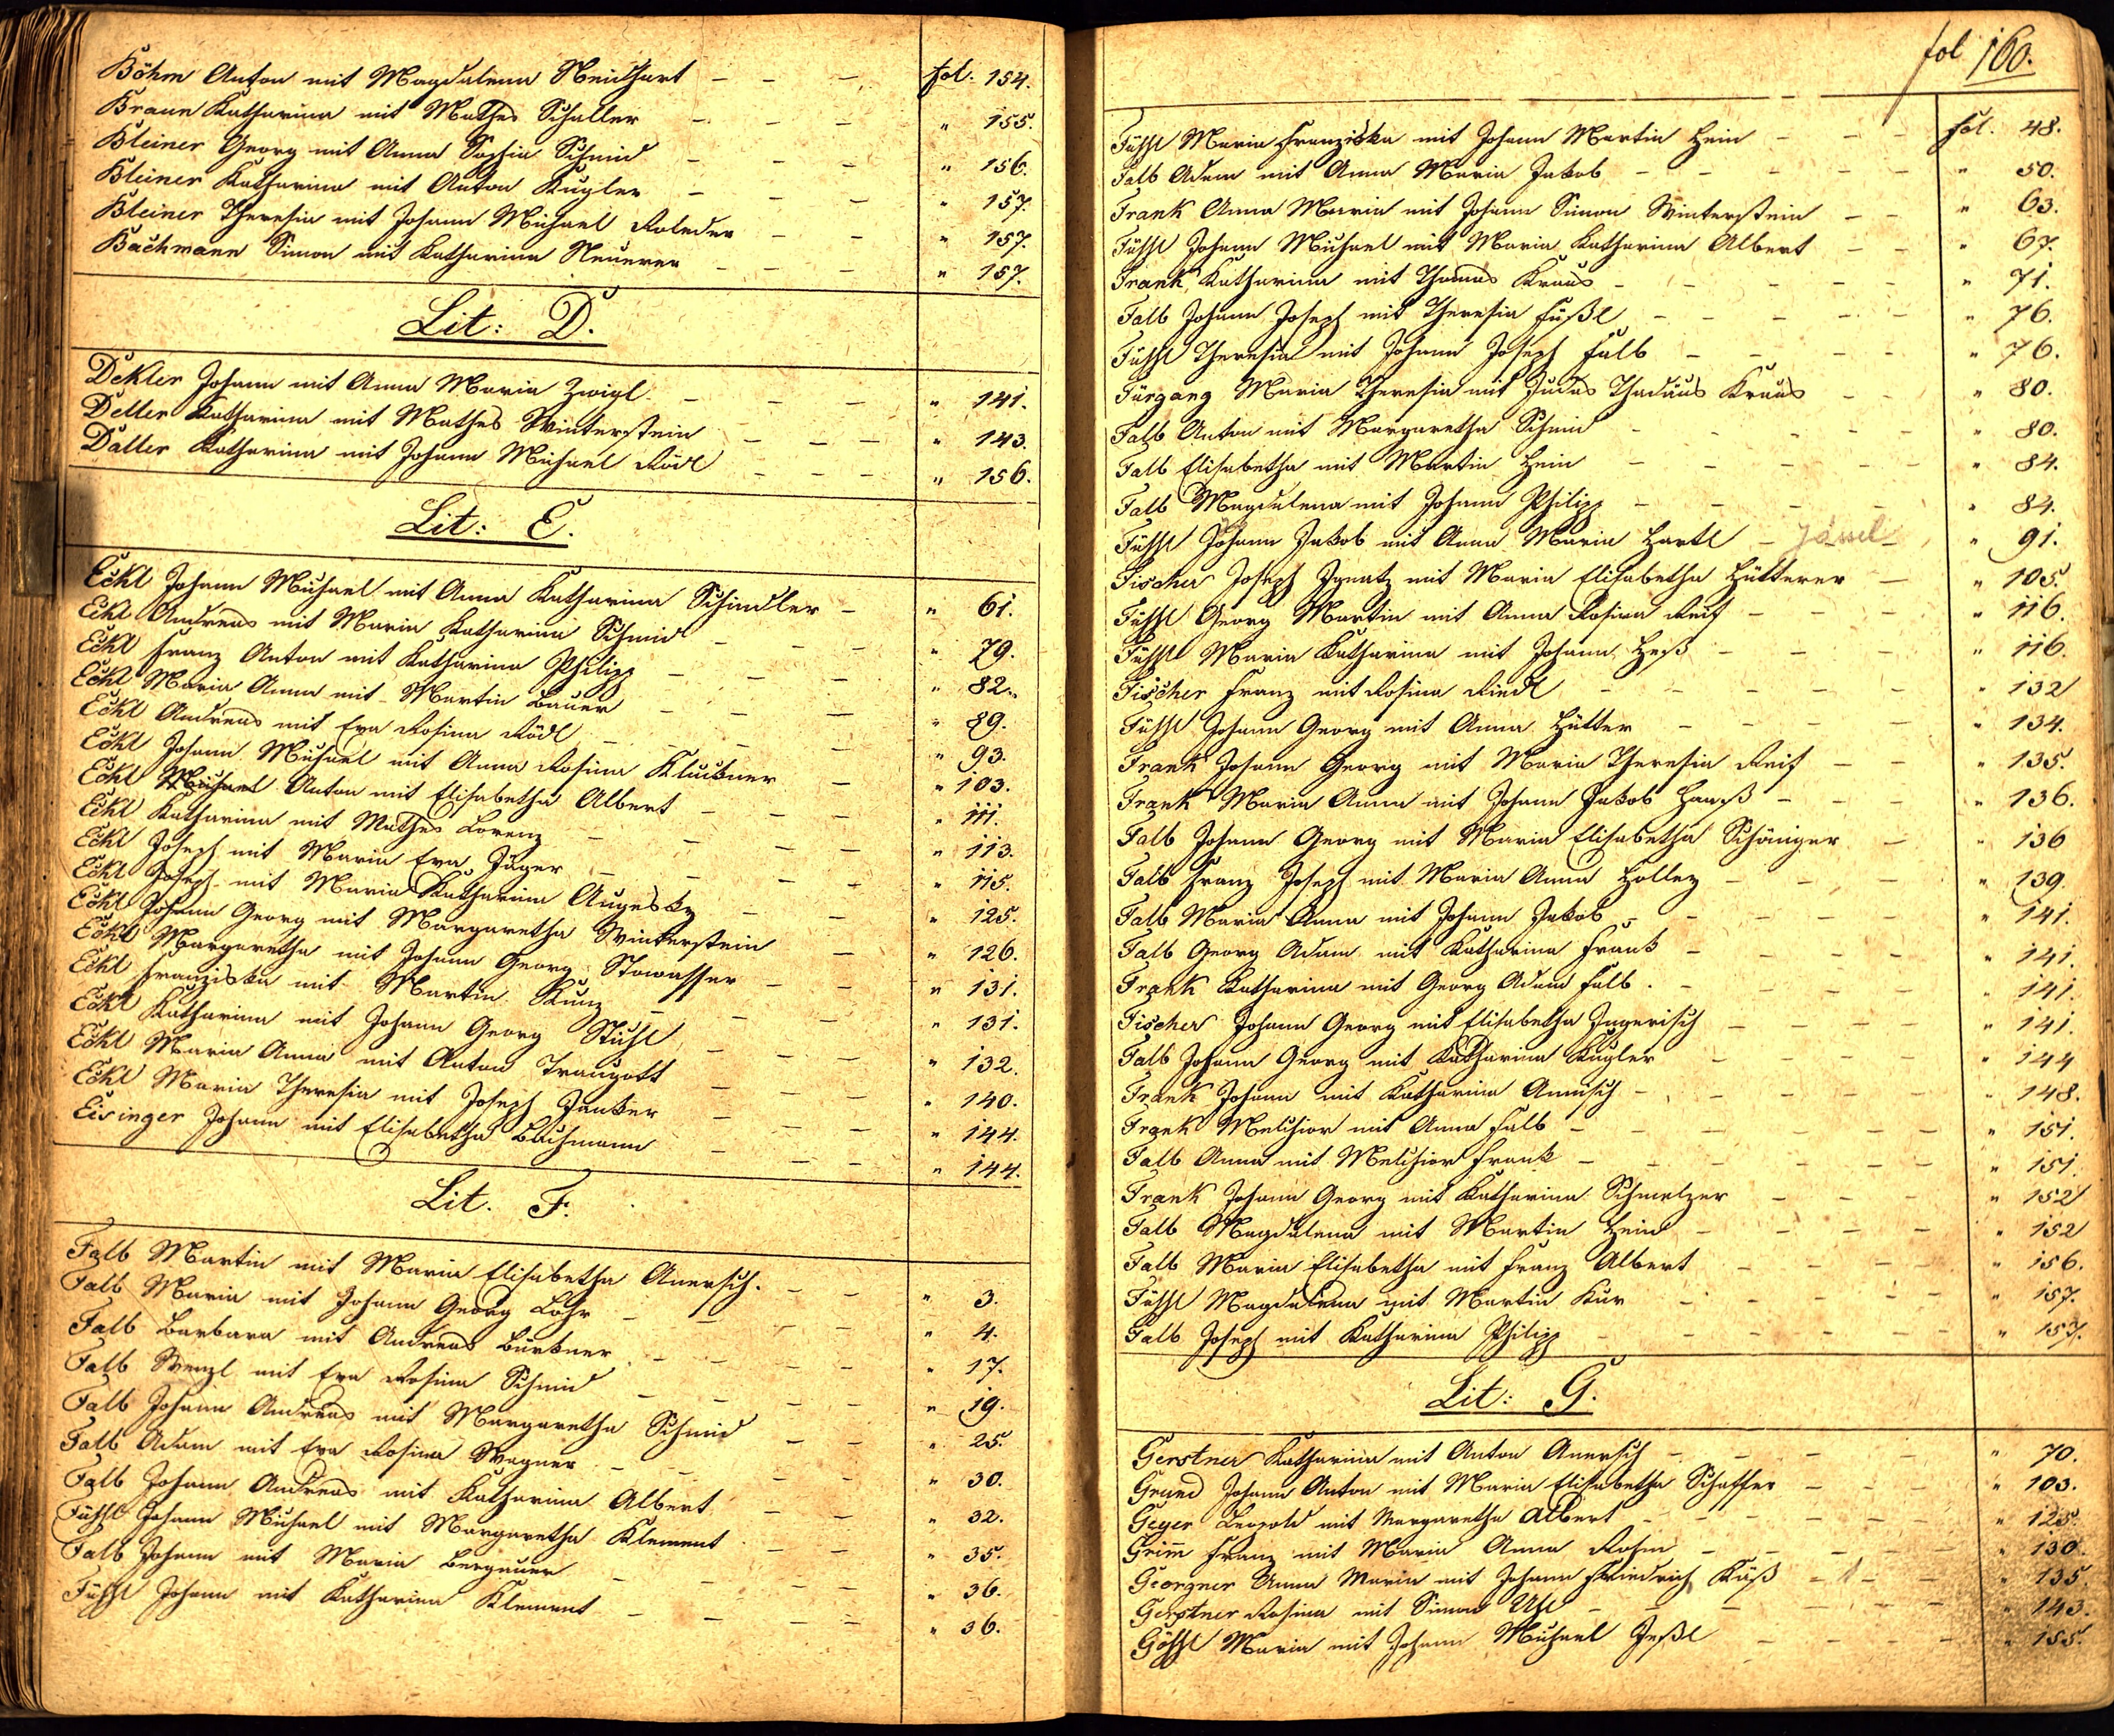 Böhm Anton mit Magdalena Neidhart - - - fol. 154.
Braun Katharina mit Mathes Schaller - - - " 155.
Bleiner Georg mit Anna Sophia Schmid - - - " 156.
Bleiner Katharina mit Anton Kugler - - - " 157.
Bleiner Theresia mit Johann Michael Roleder - - " 157.
Bachmann Simon mit Katharina Neuerer - - - " 157.
Lit: D.
Dekler Johann mit Anna Maria Zwigl - - - " 141.
Deller Katharina mit Mathes Winterstein - - - " 143.
Daller Katharina mit Johann Michael Rödl - - - " 156.
Lit: E.
Eckl Johann Michael mit Anna Katharina Schindler - " 61.
Eckl Andreas mit Maria Katharina Schmid - - - " 79.
Eckl Franz Anton mit Katharina Philipp - - - " 82.
Eckl Maria Anna mit Martin Bauer - - - " 89.
Eckl Andreas mit Eva Rosina Rödl - - - " 93.
Eckl Johann Michael mit Anna Rosina Kluckner - " 103.
Eckl Michael Anton mit Elisabetha Albert - - - " 111.
Eckl Katharina mit Mathes Lorenz - - - " 113.
Eckl Joseph mit Maria Eva Jäger - - - " 115.
Eckl Joseph mit Maria Katharina Augesky - - " 125.
Eckl Johann Georg mit Margaretha Winterstein - " 126.
Eckl Margaretha mit Johann Georg Stowasser - - " 131.
Eckl Franziska mit Martin Kunz - - - " 131.
Eckl Katharina mit Johann Georg Stuhl - - - " 132.
Eckl Maria Anna mit Anton Traugott - - - " 140.
Eckl Maria Theresia mit Joseph Janker - - - " 144.
Eisinger Johann mit Elisabetha Bachmann - - - " 144.
Lit. F.
Falb Martin mit Maria Elisabetha Anersch. - - " 3.
Falb Maria mit Johann Georg Löhr - - - " 4.
Falb Barbara mit Andreas Bürkner - - - " 17.
Falb Wenzl mit Eva Rosina Schmid - - - " 19.
Falb Johann Andreas mit Margaretha Schmid - - " 25.
Falb Adam mit Eva Rosina Wagner - - - " 30.
Falb Johann Andreas mit Katharina Albert - - " 32.
Füssl Johann Michael mit Margaretha Klement - - " 35.
Falb Johann mit Maria Bergauer - - - " 36.
Füssl Johann mit Katharina Klement - - - " 36.
fol 160.
Füssl Maria Franziska mit Johann Martin Hein - - - fol. 48.
Falb Adam mit Anna Maria Jakob - - - " 50.
Frank Anna Maria mit Johann Simon Winterstein - - " 63.
Füssl Johann Michael mit Maria Katharina Albert - - " 67.
Frank Katharina mit Thomas Kraus - - - " 71.
Falb Johann Joseph mit Theresia Füßl - - - " 76.
Füssl Theresia mit Johann Joseph Falb - - - " 76.
Fürgang Maria Theresia mit Judas Thadäus Kraus - - " 80.
Falb Anton mit Margaretha Schmid - - - " 80.
Falb Elisabetha mit Martin Hein - - - " 84.
Falb Magdalena mit Johann Philipp - - - " 84.
Füssl Johann Jakob mit Anna Maria Hartl - Jässel - " 91.
Fischer Joseph Ignatz mit Maria Elisabetha Hütterer - " 105.
Füssl Georg Martin mit Anna Rosina Reif - - - " 116.
Füssl Maria Katharina mit Johann Heß - - - " 116.
Fischer Franz mit Rosina Riedl - - - " 132
Füssl Johann Georg mit Anna Hütter - - - " 134.
Frank Johann Georg mit Maria Theresia Reif - - " 135.
Frank Maria Anna mit Johann Jakob Hauß - - - " 136.
Falb Johann Georg mit Maria Elisabetha Schöniger - " 136
Falb Franz Joseph mit Maria Anna Holley - - - " 139.
Falb Maria Anna mit Johann Jakob - - - " 141.
Falb Georg Adam mit Katharina Frank - - - " 141.
Frank Katharina mit Georg Adam Falb - - - " 141.
Fischer Johann Georg mit Elisabetha Ingerisch - - - " 141.
Falb Johann Georg mit Katharina Kugler - - - " 144
Frank Johann mit Katharina Annisch - - - " 148.
Frank Melchior mit Anna Falb - - - " 151.
Falb Anna mit Melchior Frank - - - " 151
Frank Johann Georg mit Katharina Schmelzer - - - " 152
Falb Magdalena mit Martin Hein - - - " 152
Falb Maria Elisabetha mit Franz Albert - - - " 156.
Füssl Magdalena mit Martin Kur - - - " 157.
Falb Joseph mit Katharina Philipp - - - " 157.
Lit: G.
Gerstner Katharina mit Anton Anersch - - - " 70.
Grund Johann Anton mit Maria Elisabetha Schaffer - - - " 103.
Geyer Leopold mit Margaretha Albert - - - " 125.
Grim̅ Franz mit Maria Anna Rohm - - - " 130.
Georgner Anna Maria mit Johann Friedrich Käß - - - " 135.
Gerstner Rosina mit Simon Uhl - - - " 143.
Gössl Maria mit Johann Michael Jeßl - - - " 155.